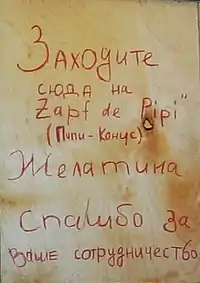 Заходите
сюда на
Zapf de Pipi"
(Пипи-Конус)
Желатина
Спасибо за
ваше сотрудничество